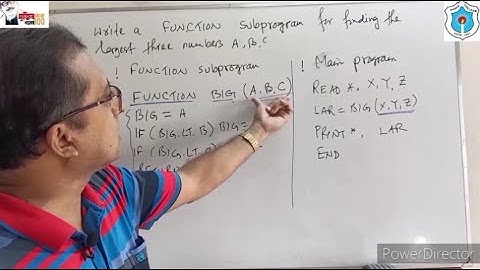 Write a FUNCTION subprogram for finding the
largest three numbers A, B, C
! FUNCTION subprogram
FUNCTION BIG (A, B, C)
BIG = A
IF (BIG.LT. B) BIG =
IF (BIG.LT.
! Main program
READ *, X, Y, Z
LAR = BIG (X, Y, Z)
PRINT *, LAR
END
PowerDirector